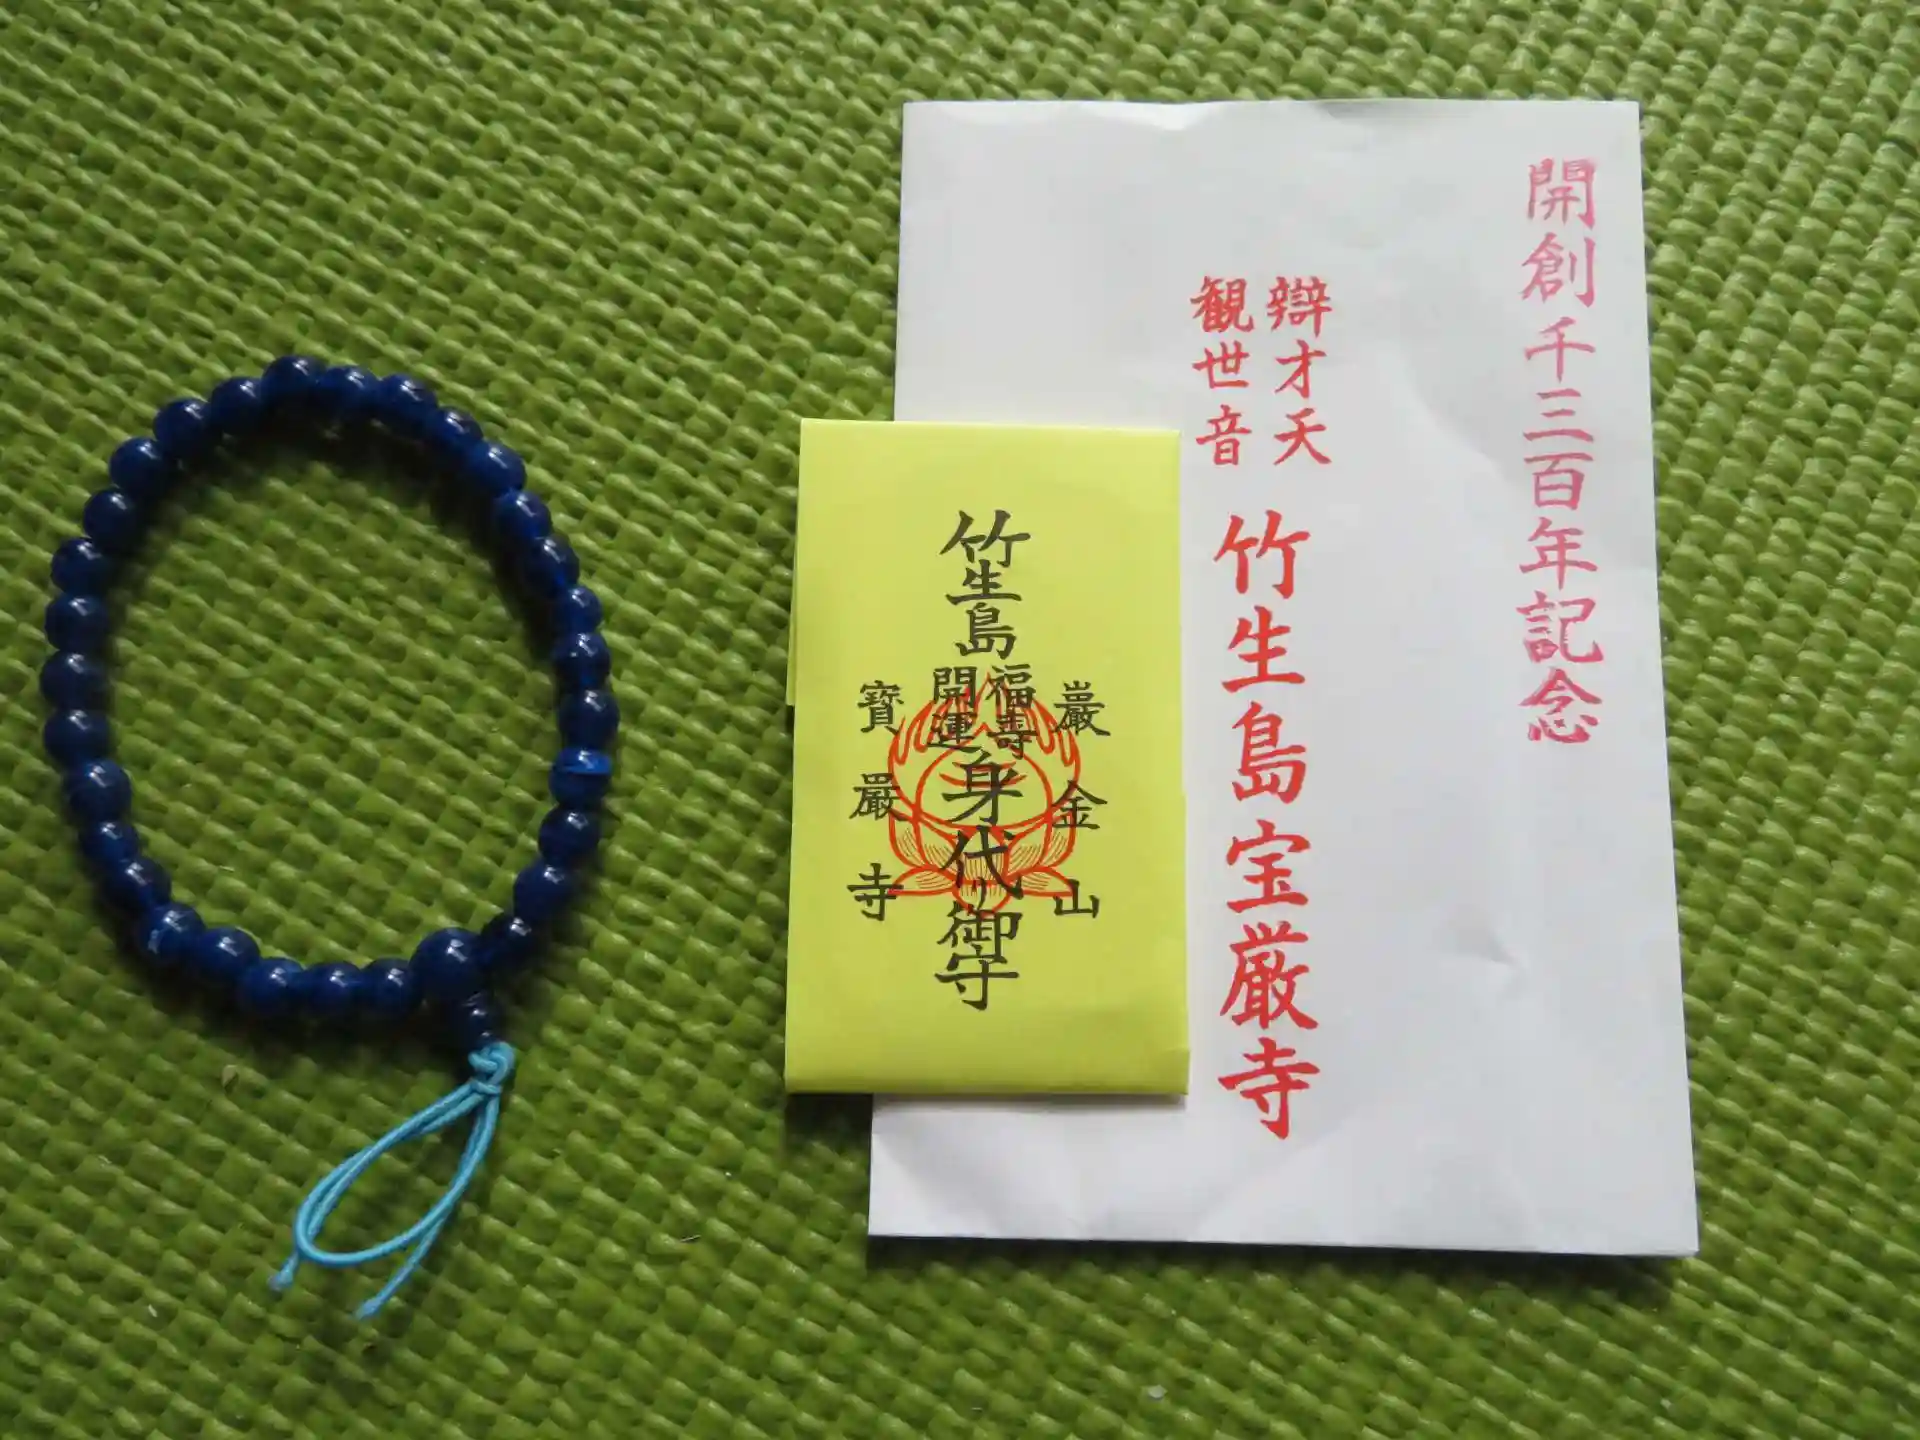 開創千三百年記念
辯才天
観世音
竹生島宝厳寺
巖金山
竹生島
福寿
開運
身代り御守
寳嚴寺